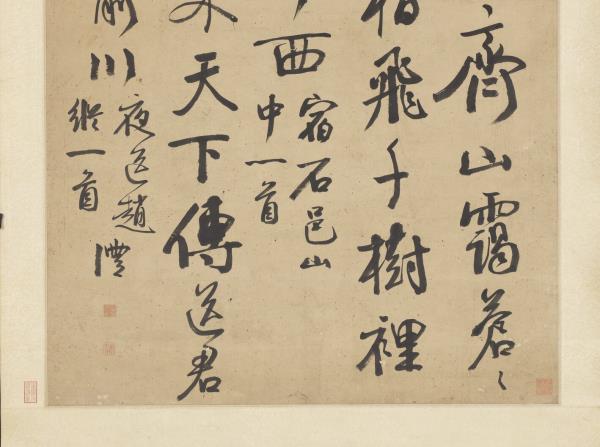 齊山靄蒼々
飛千樹裡
西
宿石邑山
中一首
天下傳送君
前川
夜送趙
縱一首